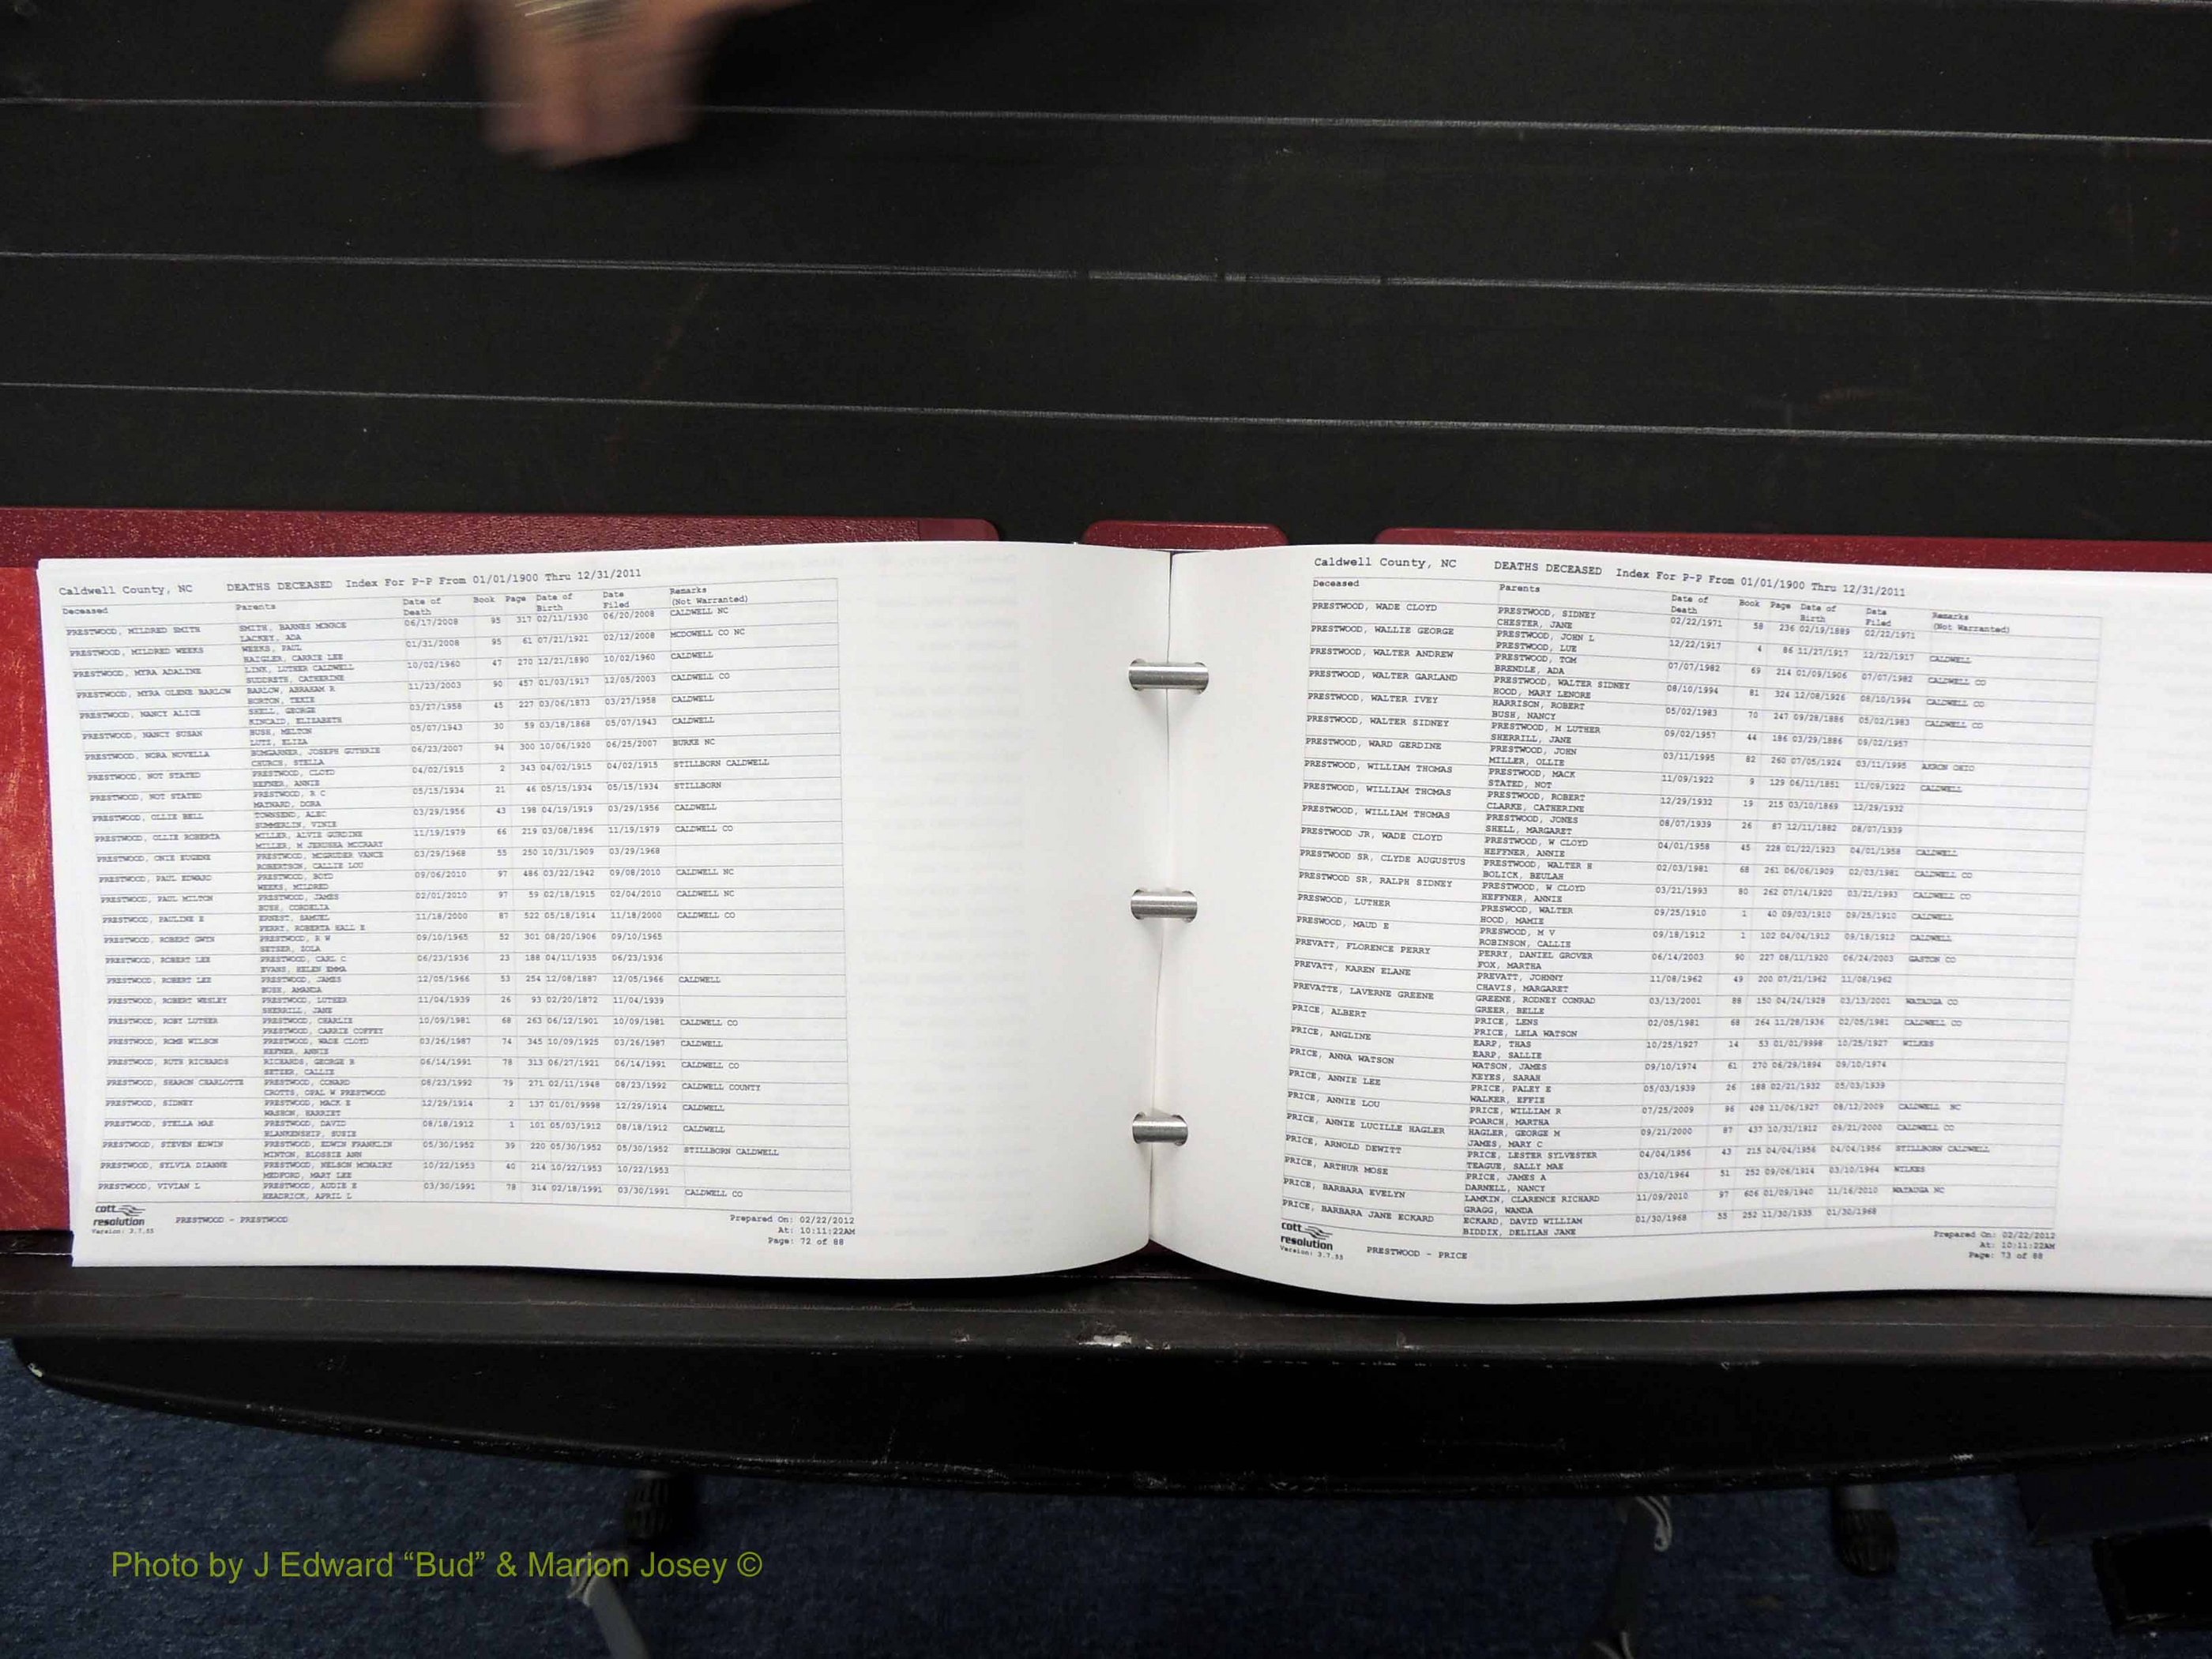 Caldwell County, NC DEATHS DECEASED Index For P-P From 01/01/1900 Thru 12/31/2011
Deceased Parents Date of Death Book Page Date of Birth Date Filed Remarks (Not Warranted)
PRESTWOOD, MILDRED SMITH SMITH, BARNES MONROE 06/17/2008 95 317 02/11/1930 06/20/2008 CALDWELL NC
LACKEY, ADA
PRESTWOOD, MILDRED WEEKS WEEKS, PAUL 01/31/2008 95 61 07/21/1921 02/12/2008 MCDOWELL CO NC
HAIGLER, CARRIE LEE
PRESTWOOD, MYRA ADALINE LINK, LUTHER CALDWELL 10/02/1960 47 270 12/21/1890 10/02/1960 CALDWELL
SUDDRETH, CATHERINE
PRESTWOOD, MYRA OLENE BARLOW BARLOW, ABRAHAM R 11/23/2003 90 457 01/03/1917 12/05/2003 CALDWELL CO
HORTON, TEXIE
PRESTWOOD, NANCY ALICE SHELL, GEORGE 03/27/1958 45 227 03/06/1873 03/27/1958 CALDWELL
KINCAID, ELIZABETH
PRESTWOOD, NANCY SUSAN BUSH, MELTON 05/07/1943 30 59 03/18/1868 05/07/1943 CALDWELL
LUTZ, ELIZA
PRESTWOOD, NORA NOVELLA BUMGARNER, JOSEPH GUTHRIE 06/23/2007 94 300 10/06/1920 06/25/2007 BURKE NC
CHURCH, STELLA
PRESTWOOD, NOT STATED PRESTWOOD, CLOYD 04/02/1915 2 343 04/02/1915 04/02/1915 STILLBORN CALDWELL
HEFNER, ANNIE
PRESTWOOD, NOT STATED PRESTWOOD, R C 05/15/1934 21 46 05/15/1934 05/15/1934 STILLBORN
MAYNARD, DORA
PRESTWOOD, OLLIE BELL TOWNSEND, ALEC 03/29/1956 43 198 04/19/1919 03/29/1956 CALDWELL
SUMMERLIN, VINIE
PRESTWOOD, OLLIE ROBERTA MILLER, ALVIE GURDINE 11/19/1979 66 219 03/08/1896 11/19/1979 CALDWELL CO
MILLER, M JERUSHA MCCRARY
PRESTWOOD, ONIE EUGENE PRESTWOOD, MCGRUDER VANCE 03/29/1968 55 250 10/31/1909 03/29/1968
ROBERTSON, CALLIE LOU
PRESTWOOD, PAUL EDWARD PRESTWOOD, BOYD 09/06/2010 97 486 03/22/1942 09/08/2010 CALDWELL NC
WEEKS, MILDRED
PRESTWOOD, PAUL MILTON PRESTWOOD, JAMES 02/01/2010 97 59 02/18/1915 02/04/2010 CALDWELL NC
BUSH, CORDELIA
PRESTWOOD, PAULINE E ERNEST, SAMUEL 11/18/2000 87 522 05/18/1914 11/18/2000 CALDWELL CO
PERRY, ROBERTA HALL E
PRESTWOOD, ROBERT GWYN PRESTWOOD, R W 09/10/1965 52 301 08/20/1906 09/10/1965
SETSER, ZOLA
PRESTWOOD, ROBERT LEE PRESTWOOD, CARL C 06/23/1936 23 188 04/11/1935 06/23/1936
EVANS, HELEN EMMA
PRESTWOOD, ROBERT LEE PRESTWOOD, JAMES 12/05/1966 53 254 12/08/1887 12/05/1966 CALDWELL
BUSH, AMANDA
PRESTWOOD, ROBERT WESLEY PRESTWOOD, LUTHER 11/04/1939 26 93 02/20/1872 11/04/1939
SHERRILL, JANE
PRESTWOOD, ROBY LUTHER PRESTWOOD, CHARLIE 10/09/1981 68 263 06/12/1901 10/09/1981 CALDWELL CO
PRESTWOOD, CARRIE COFFEY
PRESTWOOD, ROME WILSON PRESTWOOD, WADE CLOYD 03/26/1987 74 345 10/09/1925 03/26/1987 CALDWELL
HEFNER, ANNIE
PRESTWOOD, RUTH RICHARDS RICHARDS, GEORGE R 06/14/1991 78 313 06/27/1921 06/14/1991 CALDWELL CO
SETZER, CALLIE
PRESTWOOD, SHARON CHARLOTTE PRESTWOOD, CONARD 08/23/1992 79 271 02/11/1948 08/23/1992 CALDWELL COUNTY
CROTTS, OPAL W PRESTWOOD
PRESTWOOD, SIDNEY PRESTWOOD, MACK E 12/29/1914 2 137 01/01/9998 12/29/1914 CALDWELL
WASHON, HARRIET
PRESTWOOD, STELLA MAE PRESTWOOD, DAVID 08/18/1912 1 101 05/03/1912 08/18/1912 CALDWELL
BLANKENSHIP, SUSIE
PRESTWOOD, STEVEN EDWIN PRESTWOOD, EDWIN FRANKLIN 05/30/1952 39 220 05/30/1952 05/30/1952 STILLBORN CALDWELL
MINTON, BLOSSIE ANN
PRESTWOOD, SYLVIA DIANNE PRESTWOOD, NELSON MCNAIRY 10/22/1953 40 214 10/22/1953 10/22/1953
MEDFORD, MARY LEE
PRESTWOOD, VIVIAN L PRESTWOOD, AUDIE E 03/30/1991 78 314 02/18/1991 03/30/1991 CALDWELL CO
HEADRICK, APRIL L
cott
resolution
Version: 3.7.55
PRESTWOOD - PRESTWOOD
Prepared On: 02/22/2012
At: 10:11:22AM
Page: 72 of 88
Caldwell County, NC DEATHS DECEASED Index For P-P From 01/01/1900 Thru 12/31/2011
Deceased Parents Date of Death Book Page Date of Birth Date Filed Remarks (Not Warranted)
PRESTWOOD, WADE CLOYD PRESTWOOD, SIDNEY 02/22/1971 58 236 02/19/1889 02/22/1971
CHESTER, JANE
PRESTWOOD, WALLIE GEORGE PRESTWOOD, JOHN L 12/22/1917 4 86 11/27/1917 12/22/1917 CALDWELL
PRESTWOOD, LUE
PRESTWOOD, WALTER ANDREW PRESTWOOD, TOM 07/07/1982 69 214 01/09/1906 07/07/1982 CALDWELL CO
BRENDLE, ADA
PRESTWOOD, WALTER GARLAND PRESTWOOD, WALTER SIDNEY 08/10/1994 81 324 12/08/1926 08/10/1994 CALDWELL CO
HOOD, MARY LENORE
PRESTWOOD, WALTER IVEY HARRISON, ROBERT 05/02/1983 70 247 09/28/1886 05/02/1983 CALDWELL CO
BUSH, NANCY
PRESTWOOD, WALTER SIDNEY PRESTWOOD, M LUTHER 09/02/1957 44 186 03/29/1886 09/02/1957
SHERRILL, JANE
PRESTWOOD, WARD GERDINE PRESTWOOD, JOHN 03/11/1995 82 260 07/05/1924 03/11/1995 AKRON OHIO
MILLER, OLLIE
PRESTWOOD, WILLIAM THOMAS PRESTWOOD, MACK 11/09/1922 9 129 06/11/1851 11/09/1922 CALDWELL
STATED, NOT
PRESTWOOD, WILLIAM THOMAS PRESTWOOD, ROBERT 12/29/1932 19 215 03/10/1869 12/29/1932
CLARKE, CATHERINE
PRESTWOOD, WILLIAM THOMAS PRESTWOOD, JONES 08/07/1939 26 87 12/11/1882 08/07/1939
SHELL, MARGARET
PRESTWOOD JR, WADE CLOYD PRESTWOOD, W CLOYD 04/01/1958 45 228 01/22/1923 04/01/1958 CALDWELL
HEFFNER, ANNIE
PRESTWOOD SR, CLYDE AUGUSTUS PRESTWOOD, WALTER H 02/03/1981 68 261 06/06/1909 02/03/1981 CALDWELL CO
BOLICK, BEULAH
PRESTWOOD SR, RALPH SIDNEY PRESTWOOD, W CLOYD 03/21/1993 80 262 07/14/1920 03/21/1993 CALDWELL CO
HEFFNER, ANNIE
PRESWOOD, LUTHER PRESWOOD, WALTER 09/25/1910 1 40 09/03/1910 09/25/1910 CALDWELL
HOOD, MAMIE
PRESWOOD, MAUD E PRESWOOD, M V 09/18/1912 1 102 04/04/1912 09/18/1912 CALDWELL
ROBINSON, CALLIE
PREVATT, FLORENCE PERRY PERRY, DANIEL GROVER 06/14/2003 90 227 08/11/1920 06/24/2003 GASTON CO
FOX, MARTHA
PREVATT, KAREN ELANE PREVATT, JOHNNY 11/08/1962 49 200 07/21/1962 11/08/1962
CHAVIS, MARGARET
PREVATTE, LAVERNE GREENE GREENE, RODNEY CONRAD 03/13/2001 88 150 04/24/1928 03/13/2001 WATAUGA CO
GREER, BELLE
PRICE, ALBERT PRICE, LENS 02/05/1981 68 264 11/28/1936 02/05/1981 CALDWELL CO
PRICE, LELA WATSON
PRICE, ANGLINE EARP, THAS 10/25/1927 14 53 01/01/9998 10/25/1927 WILKES
EARP, SALLIE
PRICE, ANNA WATSON WATSON, JAMES 09/10/1974 61 270 06/29/1894 09/10/1974
KEYES, SARAH
PRICE, ANNIE LEE PRICE, PALEY E 05/03/1939 26 188 02/21/1932 05/03/1939
WALKER, EFFIE
PRICE, ANNIE LOU PRICE, WILLIAM R 07/25/2009 96 408 11/06/1927 08/12/2009 CALDWELL NC
POARCH, MARTHA
PRICE, ANNIE LUCILLE HAGLER HAGLER, GEORGE M 09/21/2000 87 437 10/31/1912 09/21/2000 CALDWELL CO
JAMES, MARY C
PRICE, ARNOLD DEWITT PRICE, LESTER SYLVESTER 04/04/1956 43 215 04/04/1956 04/04/1956 STILLBORN CALDWELL
TEAGUE, SALLY MAE
PRICE, ARTHUR MOSE PRICE, JAMES A 03/10/1964 51 252 09/06/1914 03/10/1964 WILKES
DARNELL, NANCY
PRICE, BARBARA EVELYN LAMKIN, CLARENCE RICHARD 11/09/2010 97 606 01/09/1940 11/16/2010 WATAUGA NC
GRAGG, WANDA
PRICE, BARBARA JANE ECKARD ECKARD, DAVID WILLIAM 01/30/1968 55 252 11/30/1935 01/30/1968
BIDDIX, DELILAH JANE
cott
resolution
Version: 3.7.55
PRESTWOOD - PRICE
Prepared On: 02/22/2012
At: 10:11:22AM
Page: 73 of 88
Photo by J Edward “Bud” & Marion Josey ©